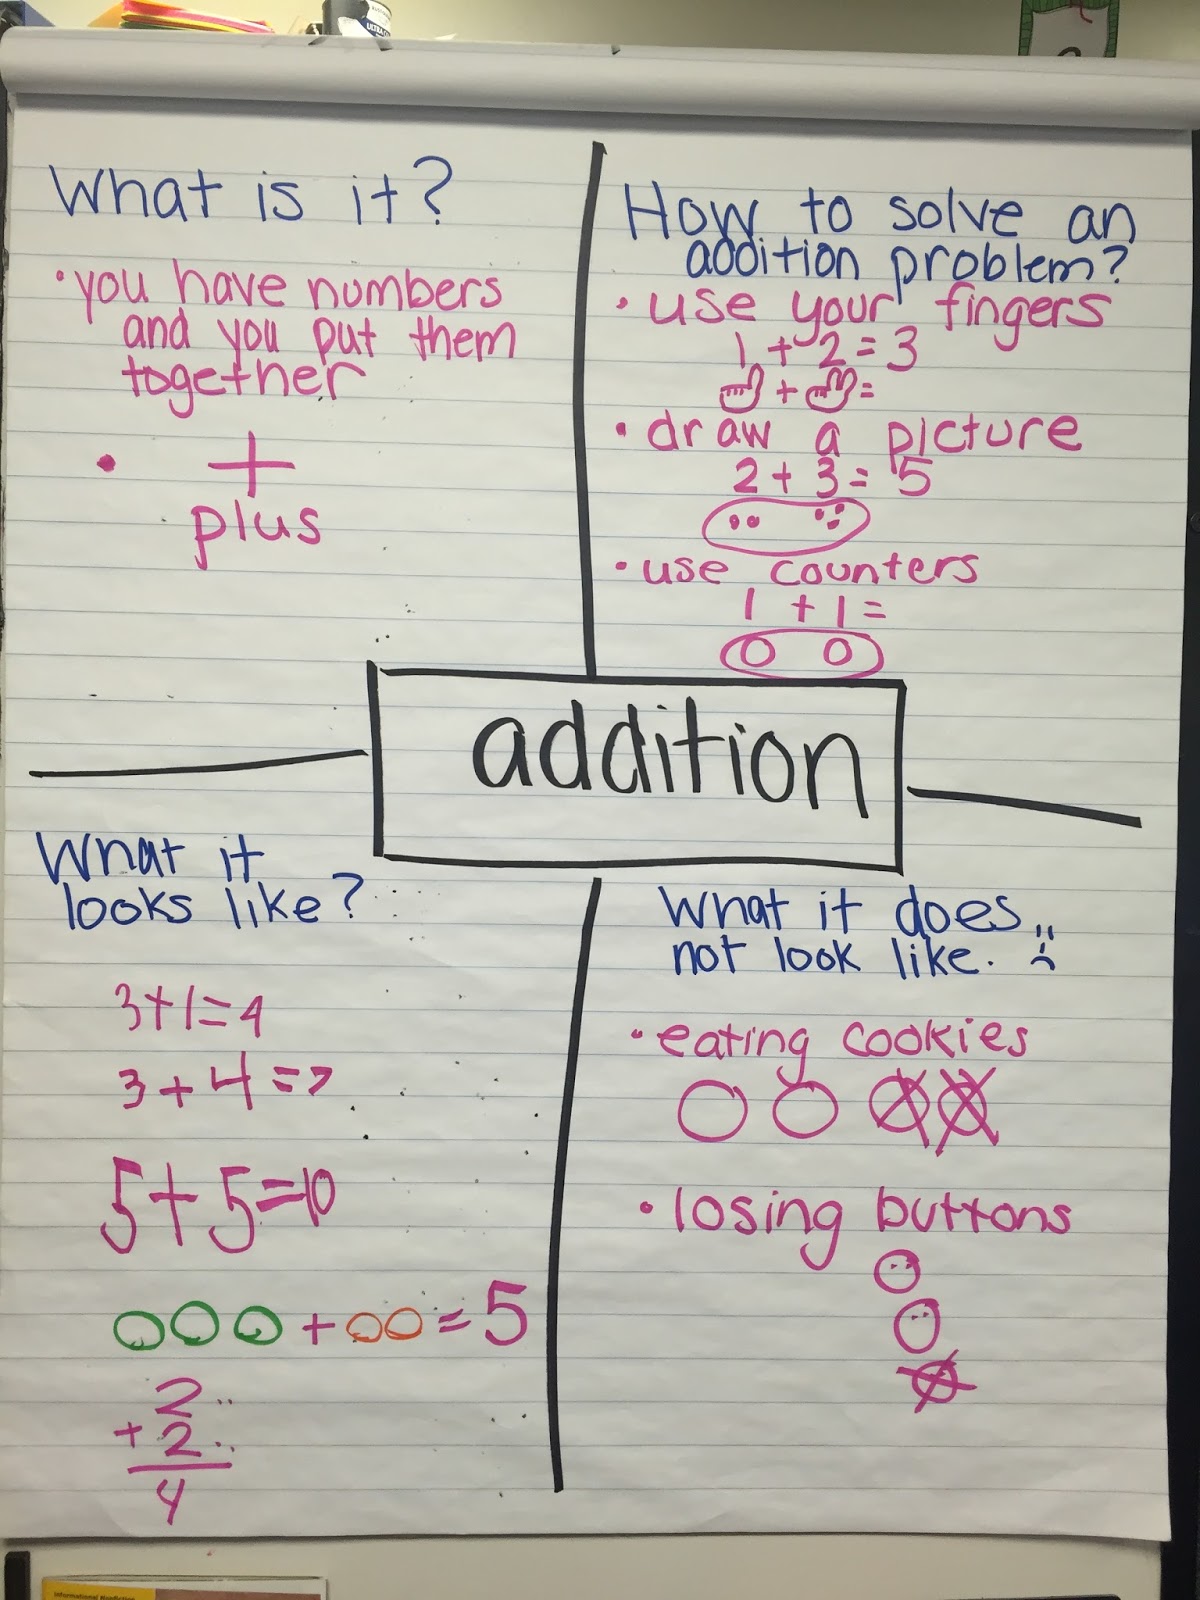 What is it?
• you have numbers
and you put them
together
• +
plus
How to solve an
addition problem?
• use your fingers
1 + 2 = 3
+ =
• draw a picture
2 + 3 = 5
• use counters
1 + 1 =
addition
What it
looks like?
3+1=4
3+4=7
5+5=10
+ = 5
2
+ 2
4
What it does
not look like.
• eating cookies
• losing buttons